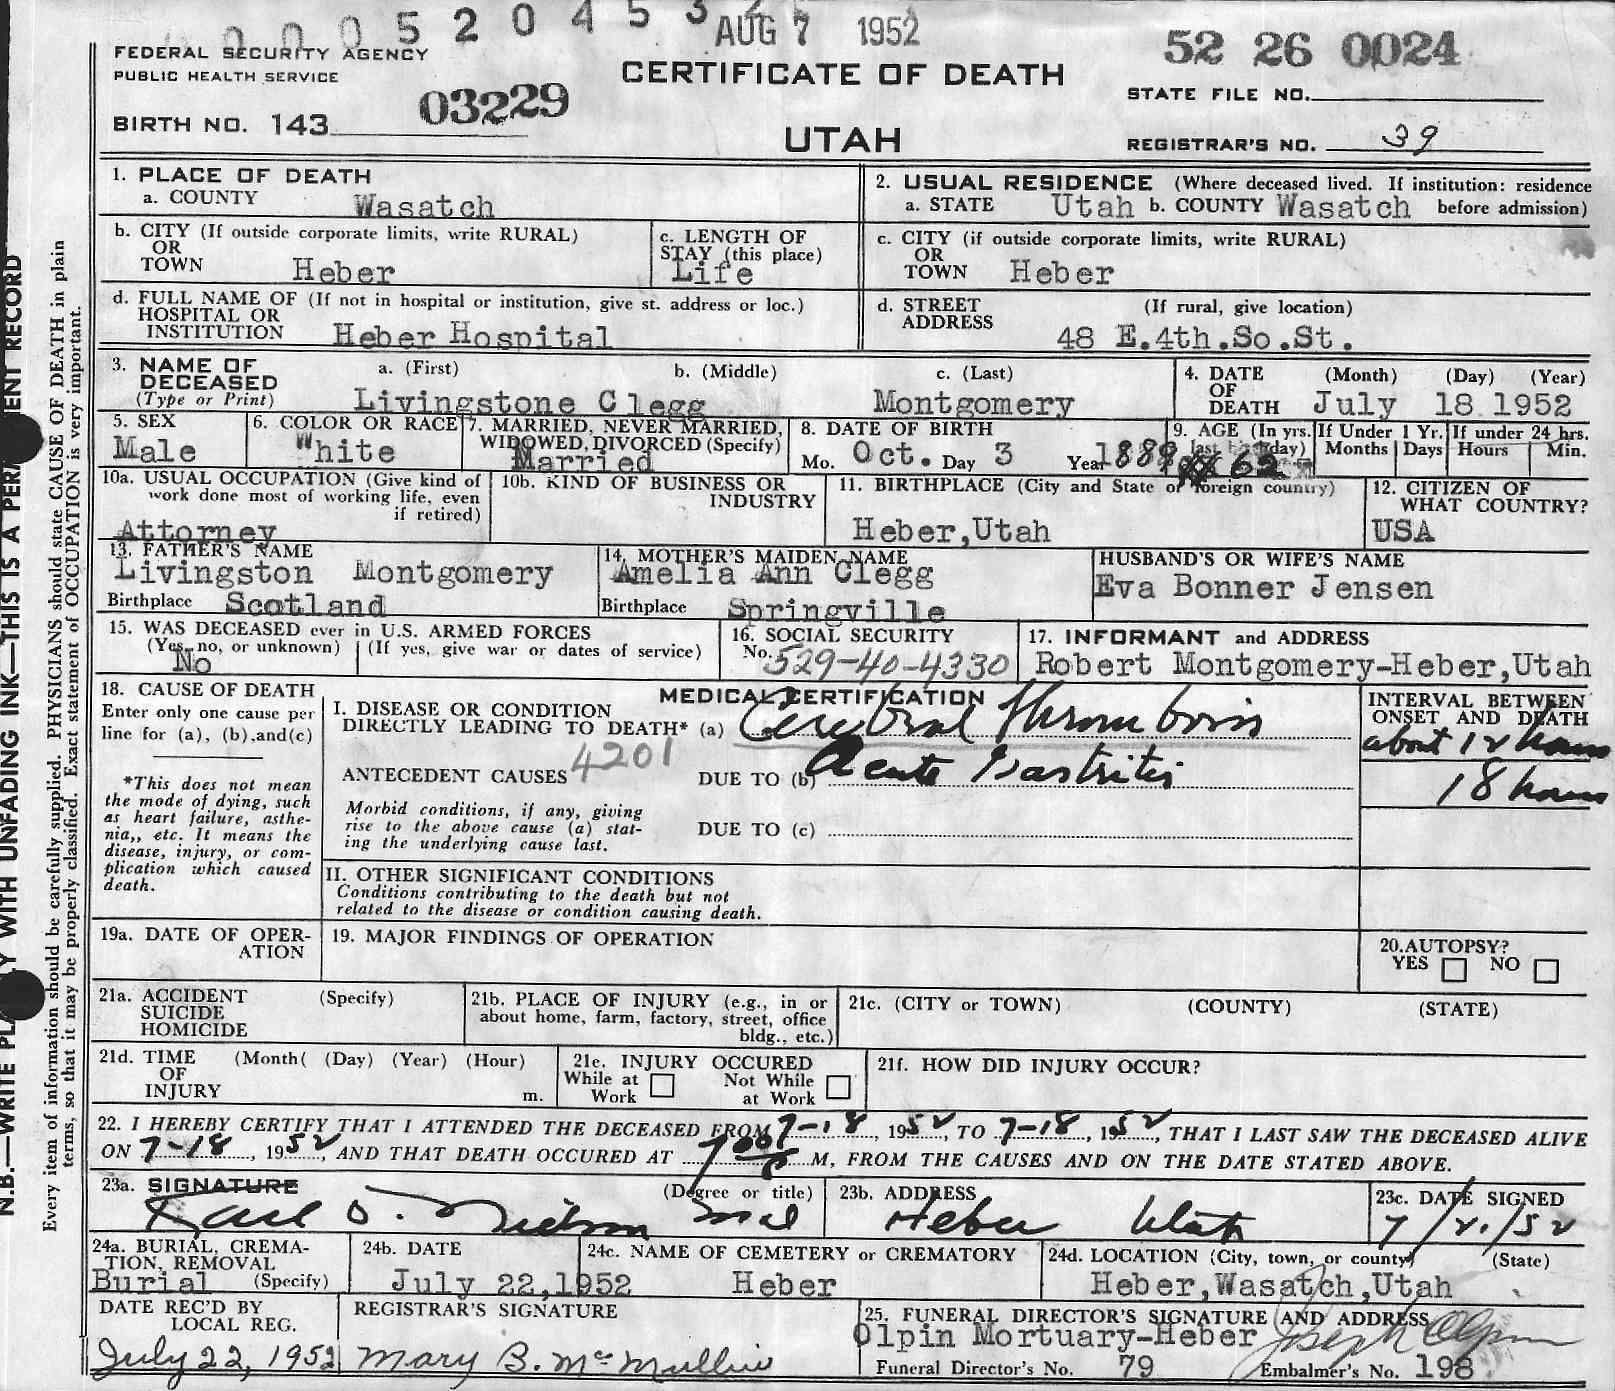 0005204532
AUG 7 1952
52 26 0024
FEDERAL SECURITY AGENCY
PUBLIC HEALTH SERVICE
CERTIFICATE OF DEATH
STATE FILE NO.
03229
BIRTH NO. 143
UTAH
REGISTRAR'S NO. 39
1. PLACE OF DEATH
a. COUNTY Wasatch
2. USUAL RESIDENCE (Where deceased lived. If institution: residence
a. STATE Utah b. COUNTY Wasatch before admission)
b. CITY (If outside corporate limits, write RURAL)
OR
TOWN Heber
c. LENGTH OF
STAY (this place)
Life
c. CITY (if outside corporate limits, write RURAL)
OR
TOWN Heber
d. FULL NAME OF (If not in hospital or institution, give st. address or loc.)
HOSPITAL OR
INSTITUTION Heber Hospital
d. STREET (If rural, give location)
ADDRESS
48 E.4th.So.St.
3. NAME OF a. (First) b. (Middle) c. (Last)
DECEASED
(Type or Print) Livingstone Clegg Montgomery
4. DATE (Month) (Day) (Year)
OF
DEATH July 18 1952
5. SEX
Male
6. COLOR OR RACE
White
7. MARRIED, NEVER MARRIED,
WIDOWED, DIVORCED (Specify)
Married
8. DATE OF BIRTH
Mo. Oct. Day 3 Year 1889
9. AGE (In yrs.
last birthday)
62
If Under 1 Yr.
Months Days
If under 24 hrs.
Hours Min.
10a. USUAL OCCUPATION (Give kind of
work done most of working life, even
if retired)
Attorney
10b. KIND OF BUSINESS OR
INDUSTRY
11. BIRTHPLACE (City and State or foreign country)
Heber,Utah
12. CITIZEN OF
WHAT COUNTRY?
USA
13. FATHER'S NAME
Livingston Montgomery
Birthplace Scotland
14. MOTHER'S MAIDEN NAME
Amelia Ann Clegg
Birthplace Springville
HUSBAND'S OR WIFE'S NAME
Eva Bonner Jensen
15. WAS DECEASED ever in U.S. ARMED FORCES
(Yes, no, or unknown) (If yes, give war or dates of service)
No
16. SOCIAL SECURITY
No. 529-40-4330
17. INFORMANT and ADDRESS
Robert Montgomery-Heber,Utah
18. CAUSE OF DEATH
Enter only one cause per
line for (a), (b),and(c)
*This does not mean
the mode of dying, such
as heart failure, asthe-
nia,, etc. It means the
disease, injury, or com-
plication which caused
death.
MEDICAL CERTIFICATION
I. DISEASE OR CONDITION
DIRECTLY LEADING TO DEATH* (a) Cerebral thrombosis
4201
ANTECEDENT CAUSES DUE TO (b) Acute Gastritis
Morbid conditions, if any, giving
rise to the above cause (a) stat-
ing the underlying cause last.
DUE TO (c)
INTERVAL BETWEEN
ONSET AND DEATH
about 12 hours
18 hours
II. OTHER SIGNIFICANT CONDITIONS
Conditions contributing to the death but not
related to the disease or condition causing death.
19a. DATE OF OPER-
ATION
19. MAJOR FINDINGS OF OPERATION
20.AUTOPSY?
YES NO
21a. ACCIDENT (Specify)
SUICIDE
HOMICIDE
21b. PLACE OF INJURY (e.g., in or
about home, farm, factory, street, office
bldg., etc.)
21c. (CITY or TOWN) (COUNTY) (STATE)
21d. TIME (Month( (Day) (Year) (Hour)
OF
INJURY m.
21e. INJURY OCCURED
While at Not While
Work at Work
21f. HOW DID INJURY OCCUR?
22. I HEREBY CERTIFY THAT I ATTENDED THE DECEASED FROM 7-18, 1952, TO 7-18, 1952, THAT I LAST SAW THE DECEASED ALIVE
ON 7-18, 1952, AND THAT DEATH OCCURED AT 7 00 P M, FROM THE CAUSES AND ON THE DATE STATED ABOVE.
23a. SIGNATURE (Degree or title)
Karl O. Nielson Md
23b. ADDRESS
Heber Utah
23c. DATE SIGNED
7/21/52
24a. BURIAL, CREMA-
TION, REMOVAL
Burial (Specify)
24b. DATE
July 22,1952
24c. NAME OF CEMETERY or CREMATORY
Heber
24d. LOCATION (City, town, or county) (State)
Heber,Wasatch,Utah
DATE REC'D BY
LOCAL REG.
July 22, 1952
REGISTRAR'S SIGNATURE
Mary B. McMullin
25. FUNERAL DIRECTOR'S SIGNATURE AND ADDRESS
Olpin Mortuary-Heber Joseph Olpin
Funeral Director's No. 79 Embalmer's No. 198
N.B.—WRITE PLA Y WITH UNFADING INK—THIS IS A PERM ENT RECORD
Every item of information should be carefully supplied. PHYSICIANS should state CAUSE OF DEATH in plain
terms, so that it may be properly classified. Exact statement of OCCUPATION is very important.